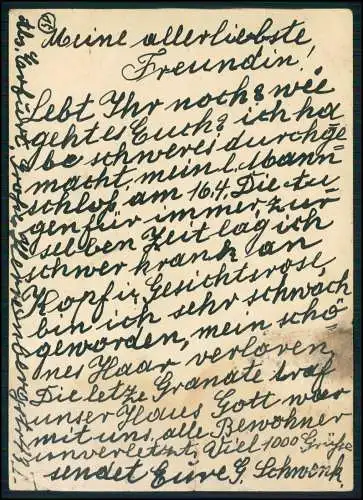 15
Meine allerliebste
Freundin!
Lebt Ihr noch? wie
geht es Euch? ich ha
be schweres durchge
macht, mein l. Mann
schloß am 16.4. Die Au
gen für immer, zur
selben Zeit lag ich
schwer krank an
Kopf u. Gesichtsrose,
bin ich sehr schwach
geworden, mein schö
nes Haar verloren,
Die letze Granate traf
unser Haus Gott war
mit uns, alle Bewohner
unverletzt, Viel 1000 Grüße
sendet Eure G. Schwenk.